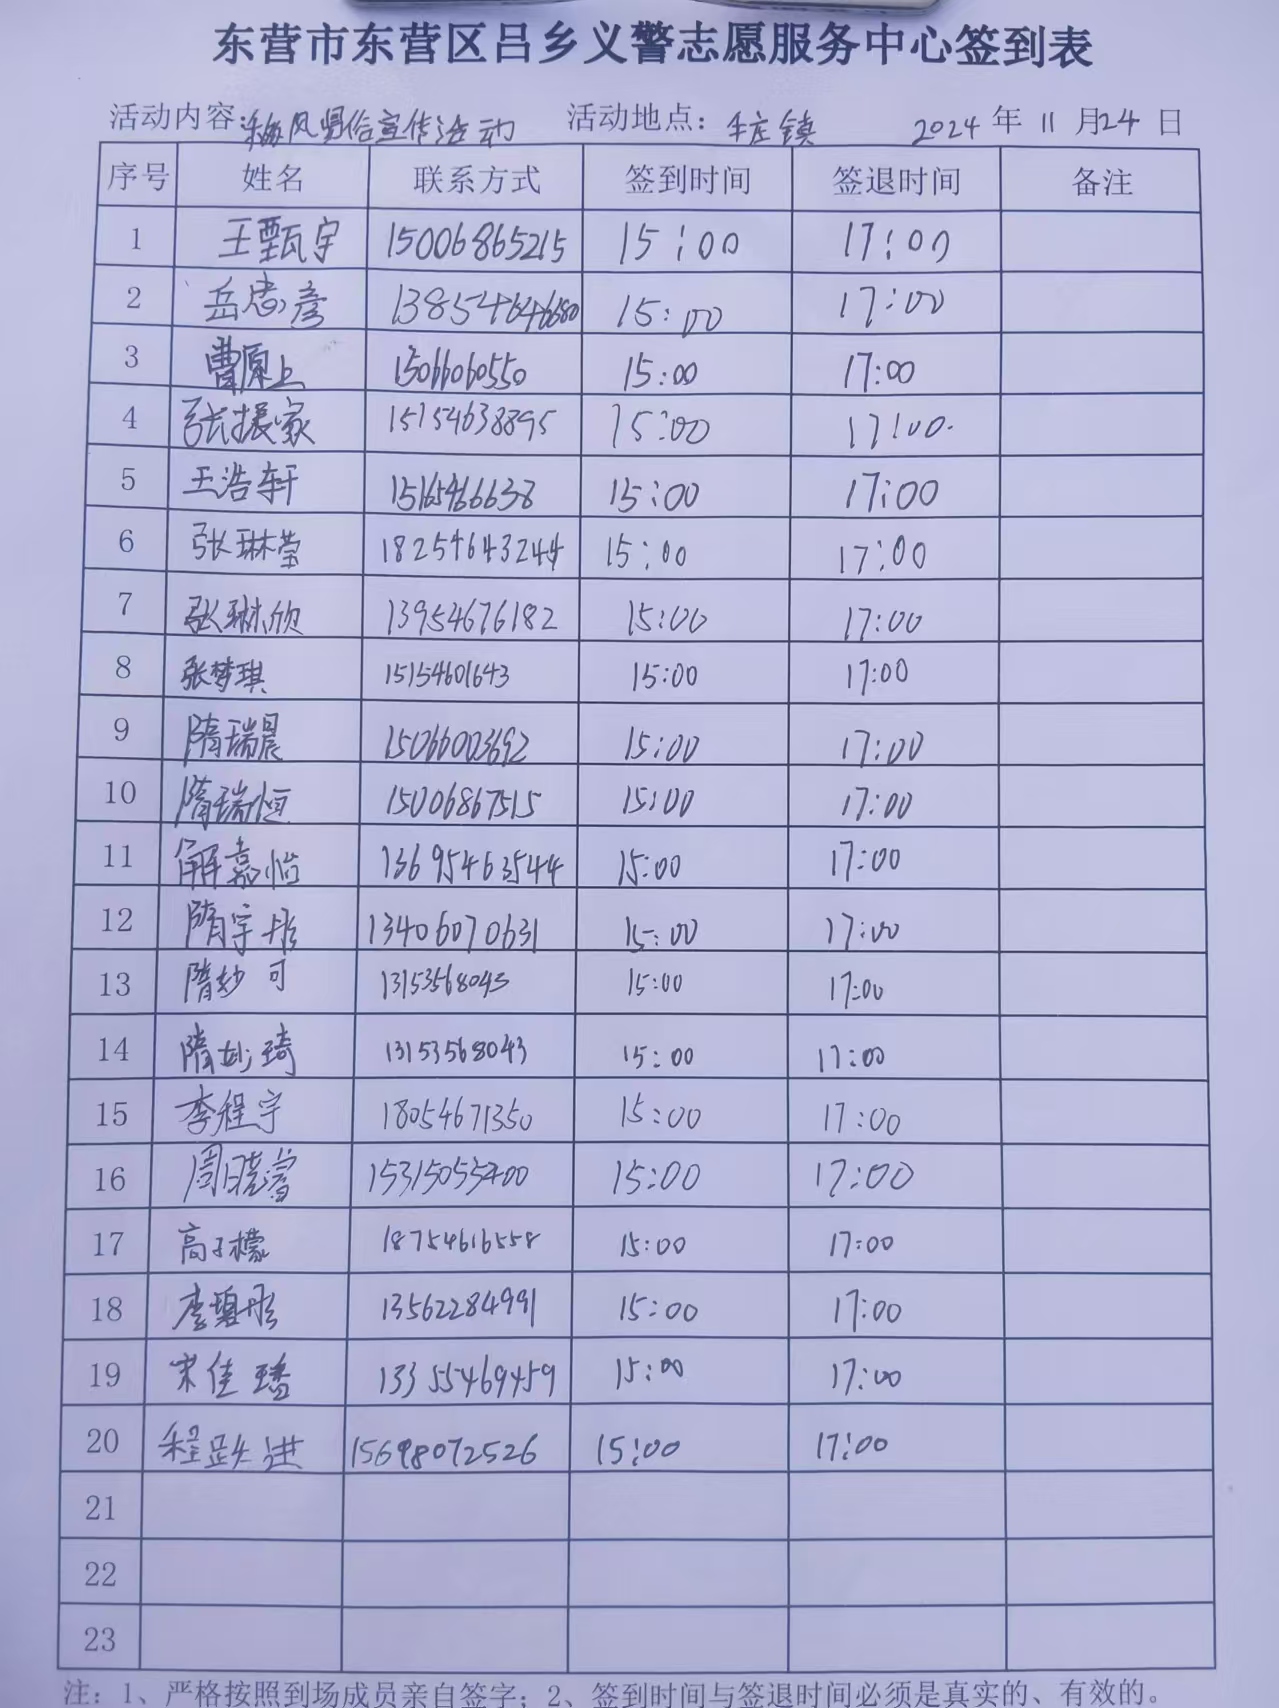 东营市东营区吕乡义警志愿服务中心签到表
活动内容:移风易俗宣传活动 活动地点: 牛庄镇 2024 年 11 月 24 日
序号 姓名 联系方式 签到时间 签退时间 备注
1 王甄宇 15006865215 15:00 17:00
2 岳忠彦 15:00 17:00
3 曹原上 15066060550 15:00 17:00
4 张援家 15154638895 15:00 17:00
5 王浩轩 15165466638 15:00 17:00
6 张琳莹 18254643244 15:00 17:00
7 张琳欣 13954676182 15:00 17:00
8 张梦琪 15154601643 15:00 17:00
9 隋瑞晨 15066003692 15:00 17:00
10 隋瑞恒 15006867515 15:00 17:00
11 解嘉怡 13695463544 15:00 17:00
12 隋宇彤 13406070631 15:00 17:00
13 隋妙可 13153568043 15:00 17:00
14 隋妙琦 13153568043 15:00 17:00
15 李程宇 18054671350 15:00 17:00
16 周晓 15:00 17:00
17 高子檬 18754616558 15:00 17:00
18 彤 13562284991 15:00 17:00
19 宋佳璠 13355469459 15:00 17:00
20 程跃进 15698072526 15:00 17:00
21
22
23
注: 1、严格按照到场成员亲自签字; 2、签到时间与签退时间必须是真实的、有效的。